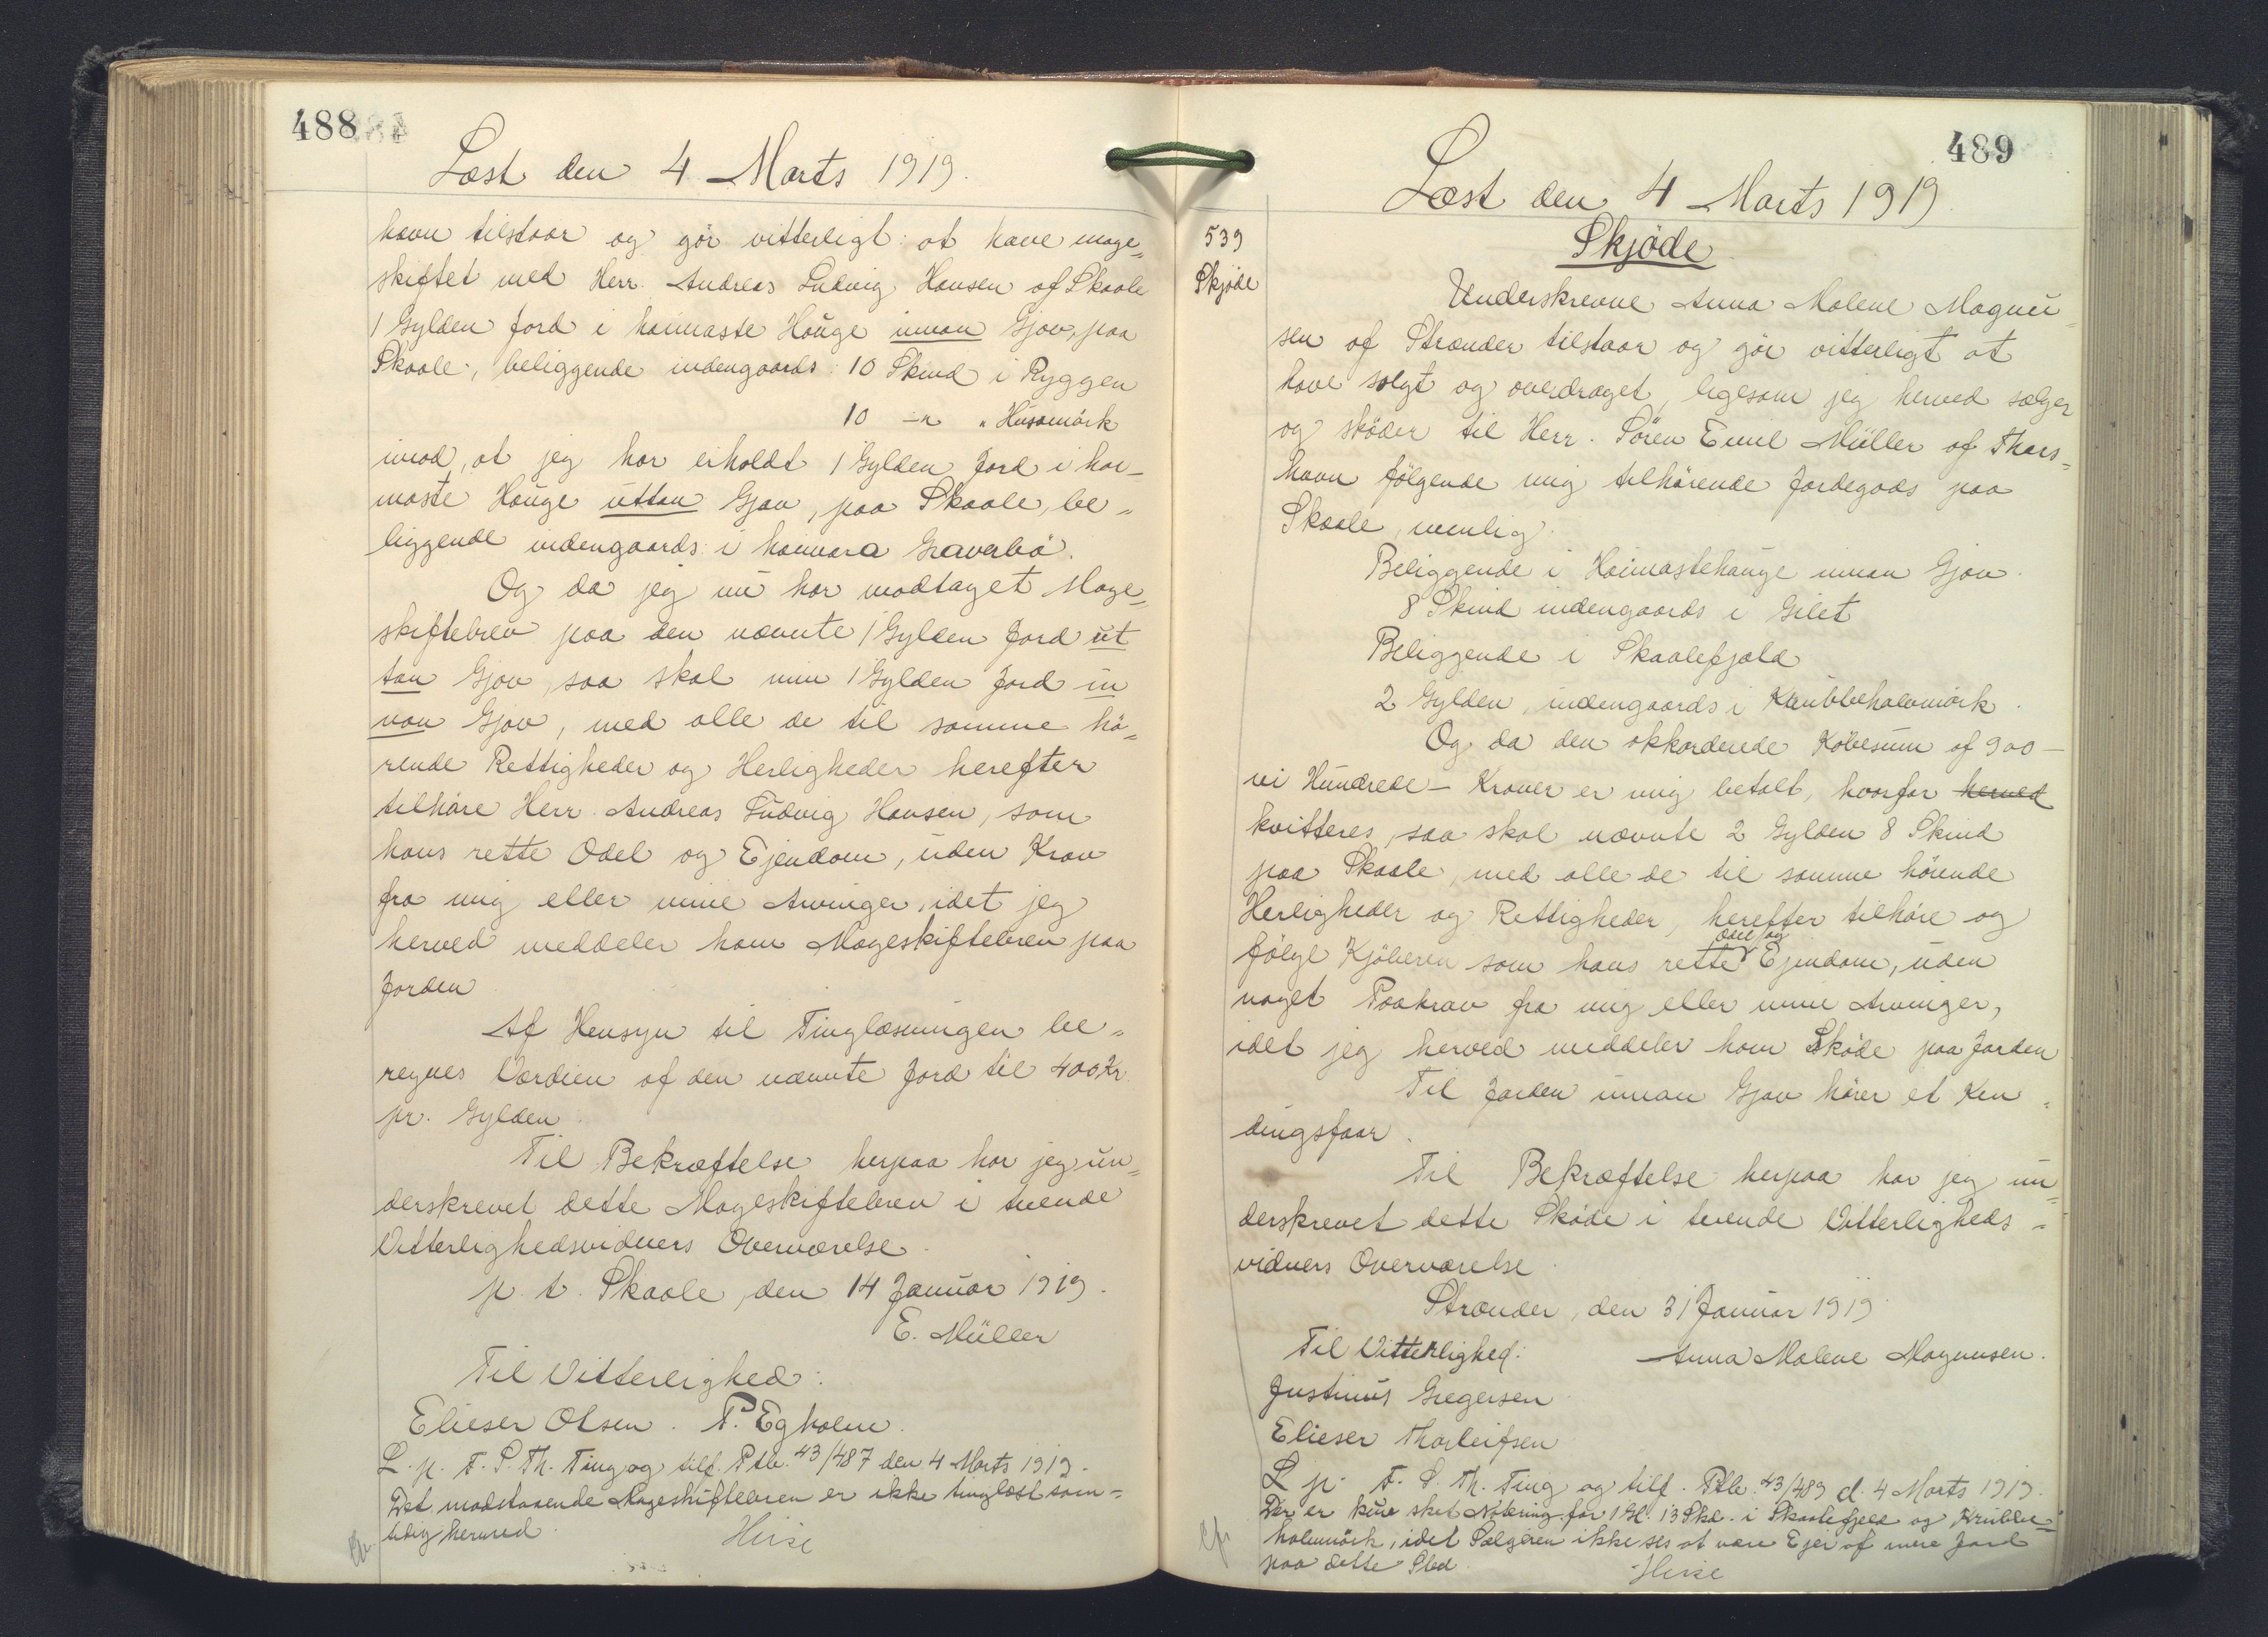 488
Læst den 4 Marts 1919.
havn tilstaar og gör vitterligt: at have mage„
skiftet med Herr. Andreas Ludvig Hansen af Skaale
1 Gylden Jord i haimaste Houge innan Gjov, paa
Skaale, beliggende indengaards: 10 Skind i Ryggen
10 —„ „ Husamörk
imod, at jeg har erholdt 1 Gylden Jord i hai-
maste Houge uttan Gjov, paa Skaale, be„
liggende indengaards i haimara Graverbö.
Og da jeg nu har modtaget Mage„
skiftebrev paa den nævnte 1 Gylden Jord ut
tan Gjov, saa skal min 1 Gylden Jord in
nan Gjov, med alle de til samme hö„
rende Rettigheder og Herligheder herefter
tilhöre Herr. Andreas Ludvig Hansen, som
hans rette Odel og Ejendom, uden Krav
fra mig eller mine Arvinger, idet jeg
herved meddeler ham Mageskiftebrev paa
Jorden
Af Hensyn til Tinglæsningen be„
regnes Værdien af den nævnte Jord til 400 Kr
pr. Gylden.
Til Bekræftelse herpaa har jeg un„
derskrevet dette Mageskiftebrev i tvende
Vitterlighedsvidners Overværelse.
p. t. Skaale, den 14 Januar 1919.
E. Müller
Til Vitterlighed:
Elieser Olsen. P. Egholm.
L. p. F. S. Th. Ting og tilf. Ptb. 43/487 den 4 Marts 1919.
Det modstaaende Mageskiftebrev er ikke tinglæst sam=
tidig hermed.
Hirse
489
Læst den 4 Marts 1919.
539
Skjöde
Skjöde
Underskrevne Anna Malene Magnu„
sen af Strænder tilstaar og gör vitterligt at
have solgt og overdraget, ligesom jeg herved sælger
og sköder til Herr. Sören Emil Müller af Thors„
havn fölgende mig tilhörende Jordegods paa
Skaale, nemlig:
Beliggende i Haimastehauge innan Gjov.
8 Skind indengaards i Gilet
Beliggende i Skaalefjæld
2 Gylden, indengaards i Krubbeholomörk.
Og da den akkorderede Köbesum af 900 —
ni Hundrede — Kroner er mig betalt, hvorfor herved
kvitteres, saa skal nævnte 2 Gylden 8 Skind
paa Skaale, med alle de til samme hörende
Herligheder og Rettigheder, herefter tilhöre og
Odel og
fölge Kjöberen som hans rette Ejendom, uden
noget Paakrav fra mig eller mine Arvinger,
idet jeg herved meddeler ham Sköde paa Jorden
Til Jorden innan Gjov hörer et Ken„
dingsfaar.
Til Bekræftelse herpaa har jeg un„
derskrevet dette Sköde i tvende Vitterligheds„
vidners Overværelse.
Strænder, den 31 Januar 1919
Til Vitterlighed: Anna Malene Magnusen.
Justinus Gregersen
Elieser Thorleifsen
L. p. F. S. Th. Ting og tilf. Ptb. 43/489 d. 4 Marts 1919.
Der er kun sket Notering for 1 Gl. 13 Skd. i Skaalefjeld og Krubbe=
holomörk, idet Sælgeren ikke ses at være Ejer af mere Jord
paa dette Sted.
Hirse